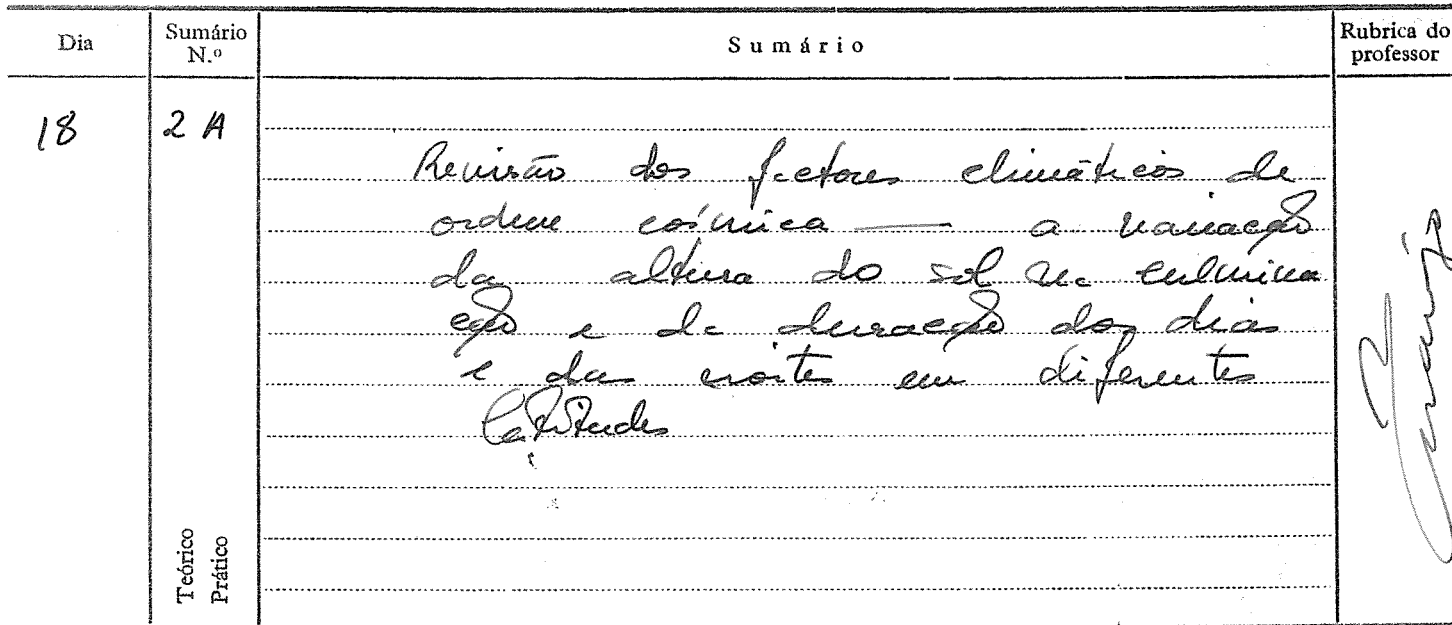 Dia
Sumário N.º
Sumário
Rubrica do professor
18
2 A
Revisão dos factores climáticos de
ordem cósmica — a variação
da altura do sol na culmina
ção e da duração dos dias
e das noites em diferentes
latitudes
Teórico
Prático